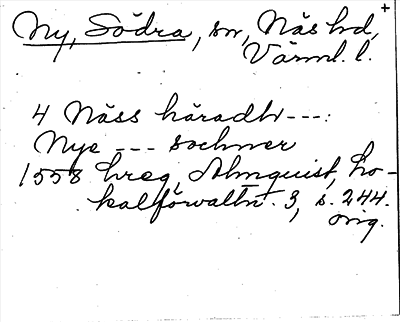 +
Ny, Södra, sn, Näs hd,
Värml. l.
4 Näss häradh ---:
Nye --- sochner
1558 hreg, Almquist, Lo-
kalförvaltn. 3, s. 244.
orig.